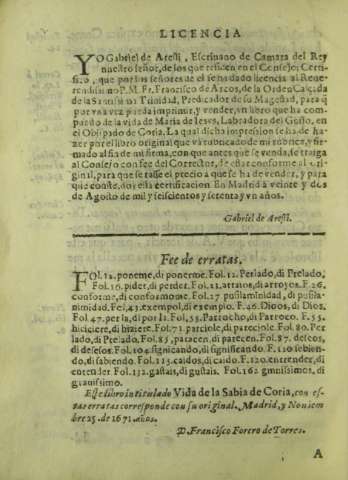 LICENCIA
YO Gabriel de Aresti, Escrivano de Camara del Rey
nuestro señor, de los que residen en el Consejo: Certi-
fico, que por los señores de el se ha dado licencia al Reue-
rendissimo P. M. Fr. Francisco de Arcos, de la Orden Calçada
de la Santissima Trinidad, Predicador de su Magestad, para q̃
por vna vez pueda imprimir, y vender, vn libro que ha com-
puesto de la vida de Maria de Iesvs, Labradora del Gusto, en
el Obispado de Coria. La qual dicha impression se ha de ha-
zer por el libro original que và rubricado de mi rubrica, y fir-
mado al fin de mi firma, con que antes que se venda, se traiga
al Consejo con fee del Corrector, de estar conforme al ori-
ginal, para que se tasse el precio a que se ha de vender, y para
que conste, doy esta certificacion. En Madrid à veinte y dos
de Agosto de mil y seiscientos y setenta y vn años.
Gabriel de Aresti.
Fee de erratas.
FOl. 12. poneme, di ponerme. Fol. 12. Perlado, di Prelado.
Fol. 16. pider, di perder. Fol. 23. atroios, di arroyos. F. 26.
conforme, di conformome. Fol. 27. pusilaminidad, di pusila-
nimidad. Fol. 43. exempol, di exemplo. F. 46. Dioos, di Dios.
Fol. 47. per la, di por la. Fol. 55. Parrocho, di Parroco. F. 55.
hiciciere, di hiziere. Fol. 71. parciole, di pareciole. Fol. 80. Per
lado, di Prelado. Fol. 85, paracen, di parecen. Fol. 87. deceos,
di deseos. Fol. 104. signicando, di significando. F. 110. sebien-
do, di sabiendo. Fol. 115. caidos, di caido. F. 120. entrender, di
entender Fol. 132. gastais, di gustais. Fol. 162. gnnissimos, di
granissimo.
Este libro intitulado Vida de la Sabia de Coria, con es-
tas erratas corresponde con su original. Madrid, y Nouiem
bre 25. de 1671. años.
D. Francisco Forero de Torres.
A